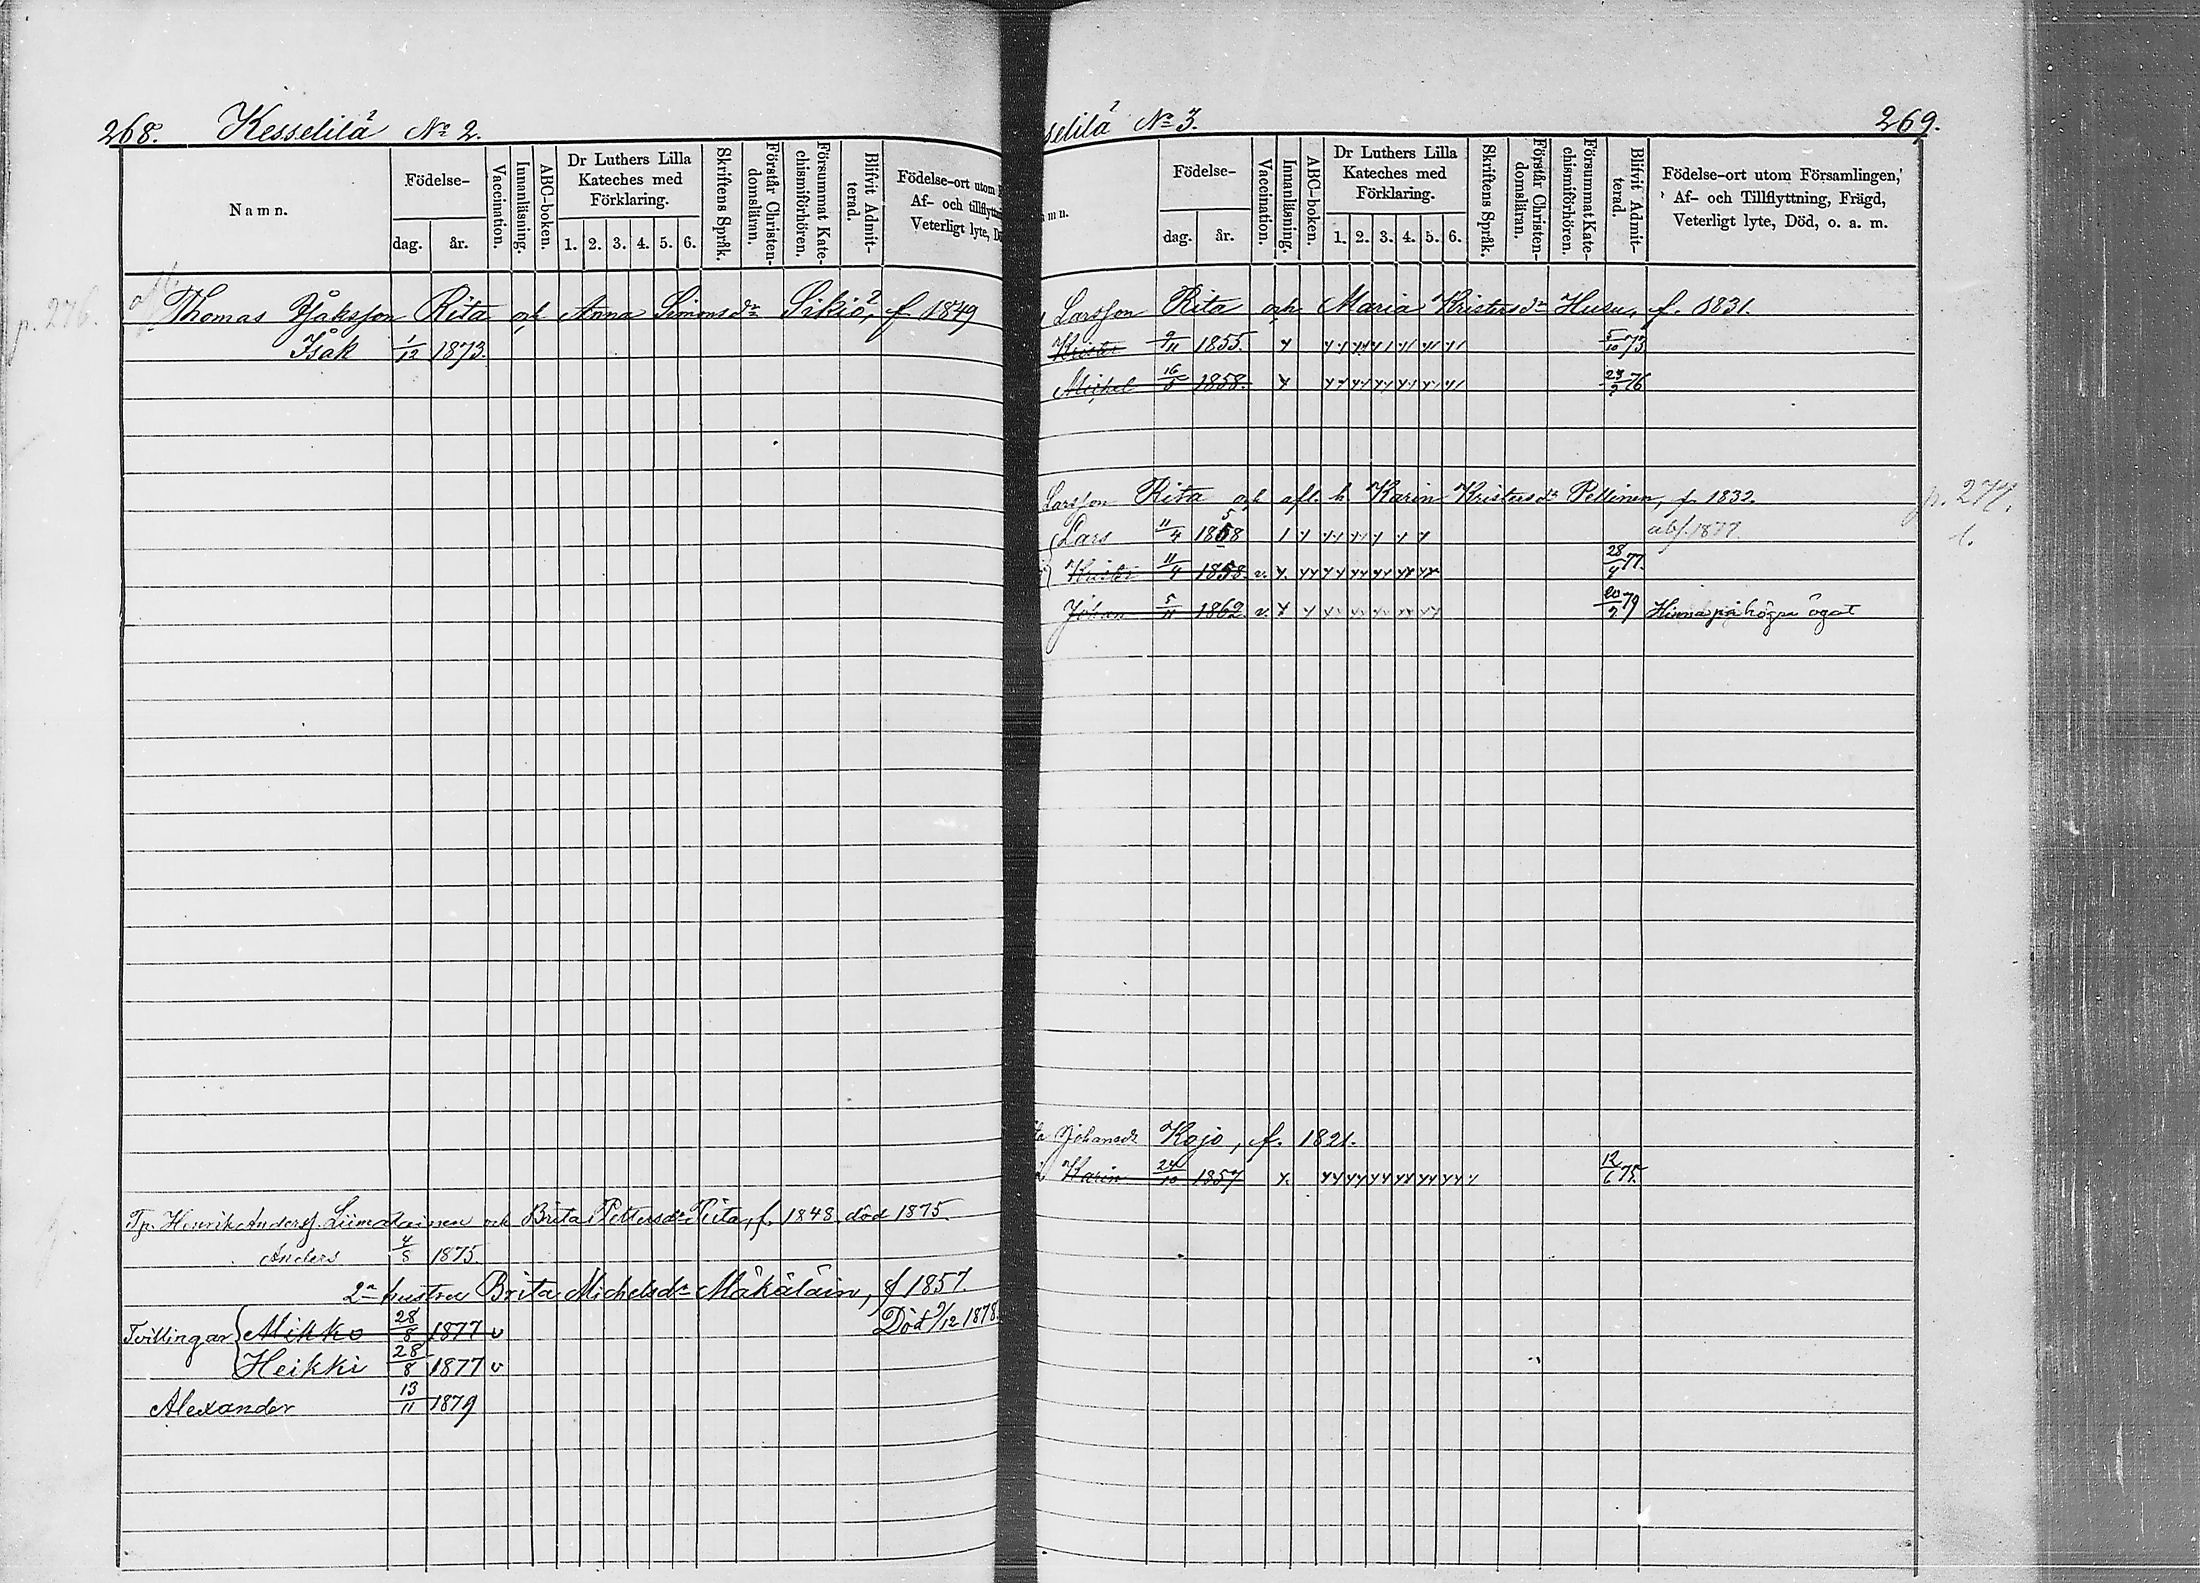 268. Kesselilä No 2.
Namn.
Födelse-
dag. år.
Vaccination.
Innanläsning.
ABC-boken.
Dr Luthers Lilla Kateches med Förklaring.
1. 2. 3. 4. 5. 6.
Skriftens Språk.
Förstår Christen-domsläran.
Försummat Kate-chismiförhören.
Blifvit Admit-terad.
Födelse-ort utom
Af- och tillflyttn
Veterligt lyte, D
p. 276.
Thomas Rita och Anna Simonsdr Sikiö, f 1849
Isak 1/12 1873.
Tp. Henrik Andersf. Liimatainen och Brita Pettersdr Rita, f. 1848. död 1875.
Anders 4/8 1875.
2a hustru Brita Michelsdr Mäkäläin, f 1857.
Tvillingar Mikko 28/8 1877 v Död 9/12 1878.
Heikki 28/8 1877 v
Alexander 13/11 1879
selilä No 3. 269.
mn.
Födelse-
dag. år.
Vaccination.
Innanläsning.
ABC-boken.
Dr Luthers Lilla Kateches med Förklaring.
1. 2. 3. 4. 5. 6.
Skriftens Språk.
Förstår Christen-domsläran.
Försummat Kate-chismiförhören.
Blifvit Admit-terad.
Födelse-ort utom Församlingen,
Af- och Tillflyttning, Frägd,
Veterligt lyte, Död, o. a. m.
Larsson Rita och Maria Kristersdr Husu, f. 1831.
Krister 9/11 1855. 5/10 73
Michel 16/5 1858. 76
Larsson Rita och afl. h. Karin Kristersdr Pellinen, f. 1832. p. 277.
Lars 11/4 1858 abs. 1877.
Krister 11/4 1858. v. 28/4 77.
Johan 5/11 1862 v. 20/2 79 Hinna på högra ögat
Johansdr Kojo, f. 1821.
Karin 24/10 1857 12/6 75.